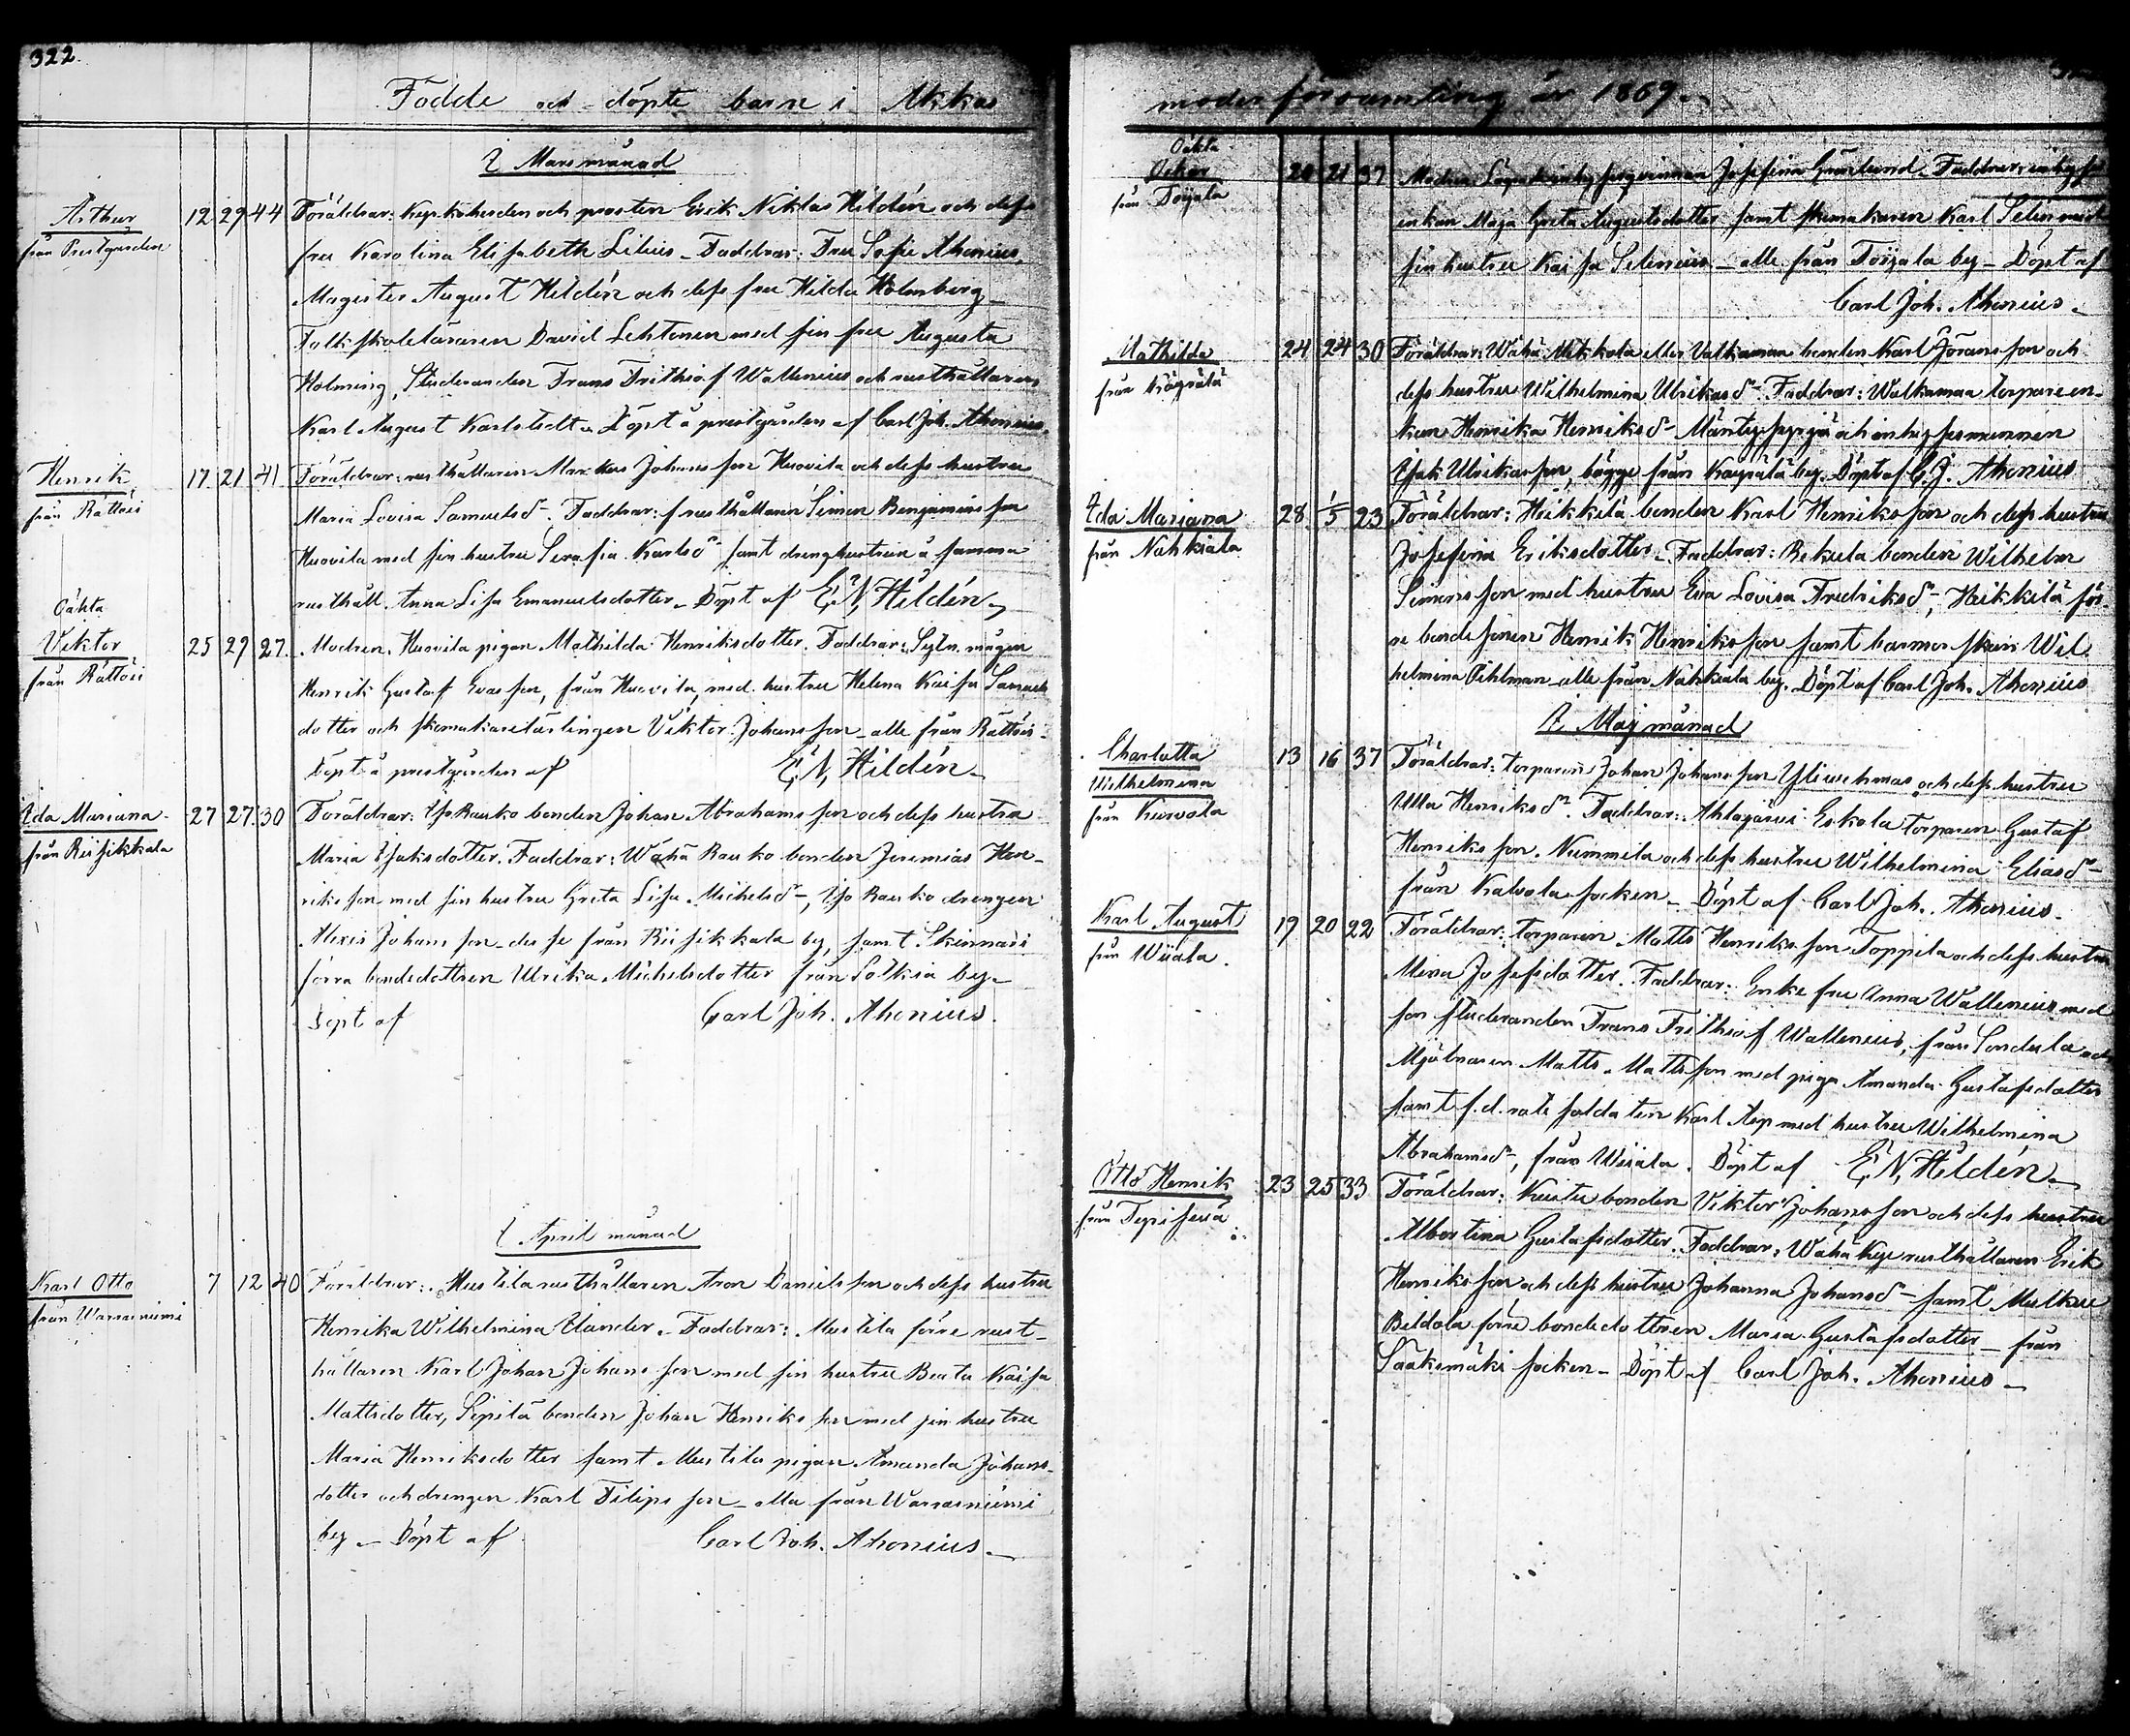 322.
Födde och döpte barn i Akkas
I Mars månad
Arthur
från Prestgården
12 29 44 Föräldrar: Kyrkoherden och prosten Erik Niklas Hildén och dess
fru Karolina Elisabeth Lilius – Faddrar: Fru Sofie Ahonius,
Magister August Hildén och dess fru Hilda Holmberg
Folkskoleläraren David Lehtonen med sin fru Augusta
Holming, Studeranden Frans Frithiof Wallenius och rusthållaren
Karl August Karlstedt. Döpt å prestgården af Carl Joh. Ahonius.
Henrik
från Rättöi
17 21 41 Föräldrar: rusthållaren Markus Johansson Huovila och dess hustru
Maria Lovisa Samuelsdr. Faddrar: f rusthållaren Simon Benjaminsson
Huovila med sin hustru Serafia Karlsdr samt dränghustrun å samma
rusthåll Anna Lisa Emanuelsdotter – Döpt af E. N. Hildén
Oäkta
Viktor
från Rättöi
25 27 27 Modren, Huovila pigan Mathilda Henriksdotter. Faddrar: Sytn. mågen
Henrik Gustaf Evasson, från Huovila, med hustru Helena Kaisa Samuels
dotter och skomakarelärlingen Viktor Johansson – alla från Rättöi –
Döpt å prestgården af E. N. Hildén –
Ida Mariana
från Riisikkala
27 27 30 Föräldrar: Iso Rauko bonden Johan Abrahamsson och dess hustru
Maria Isaksdotter. Faddrar: Wähä Rauko bonden Jeremias Hen-
riksson med sin hustru Greta Lisa Michelsdr –, Iso Rauko drengen
Alexis Johansson – desse från Riisikkala by, samt Skinnari
förra bondedottren Ulrika Michelsdotter från Sotkia by –
Döpt af Carl Joh. Ahonius.
I April månad
Karl Otto
från Warrasniemi
7 12 40 Föräldrar: Mustila rusthållaren Aron Danielsson och dess hustru
Henrika Wilhelmina Elander. – Faddrar: Mustila förre rust-
hållaren Karl Johan Johansson med sin hustru Beata Kaisa
Mattsdotter, Sipilä bonden Johan Henriksson med sin hustru
Maria Henriksdotter samt Mustila pigan Amanda Johans-
dotter och drengen Karl Filipsson – alla från Warrasniemi
by – Döpt af Carl Joh. Ahonius –
moderförsamling år 1869.
Oäkta
Oskar
från Toijala
20 21 37 Modren: Josefina Grönlund. Faddrar: inhyses
enkan Maja Greta Augustsdotter samt skomakaren Karl Selin med
sin hustru Kaisa Selenius – alla från Toijala by – Döpt af
Carl Joh. Ahonius –
Mathilda
från Kägrälä
24 24 30 Föräldrar: Wähä Mikkola eller Valkaman bonden Karl Göransson och
dess hustru Wilhelmina Ulrikasdr – Faddrar: Walkaman torpare en-
kan Henrika Henriksdr – Mäntysyrjä och inhysesmannen
Isak Ulrikasson, bägge från Kägrälä by. Döpt af C. J. Ahonius
Ida Mariana
från Nahkiala
28 1/5 23 Föräldrar: Heikkilä bonden Karl Henriksson och dess hustru
Josefina Eriksdotter – Faddrar: Rekula bonden Wilhelm
Simonsson med hustru Eva Lovisa Fredriksdr –, Heikkilä för-
re bondesonen Henrik Henriksson samt barnmorskan Wil-
helmina Pihlman – alla från Nahkiala by. Döpt af Carl Joh. Ahonius
I Maj månad
Charlotta
Wilhelmina
från Kurvola
13 16 37 Föräldrar: torparen Johan Johansson Yliuuhmas och dess hustru
Ulla Henriksdr. Faddrar: Ahlajärvi Eskola torparen Gustaf
Henriksson Nummila och dess hustru Wilhelmina Eliasdr –
från Kalvola socken – Döpt af Carl Joh. Ahonius.
Karl August
från Wiiala.
19 20 22 Föräldrar: torparen Matts Henriksson Toppila och dess hustru
Mina Josefsdotter. Faddrar: Enke fru Anna Wallenius med
son studeranden Frans Frithiof Wallenius, från Sondula och
Mjölnaren Matts Mattsson med piga Amanda Gustafsdotter
samt f.d. rote soldaten Karl Asp med hustru Wilhelmina
Abrahamsdr –, från Wiiala. Döpt af E. N. Hildén –
Otto Henrik
från Terisjerä
23 25 33 Föräldrar: Kustu bonden Viktor Johansson och dess hustru
Albertina Gustafsdotter. Faddrar: Wähä rusthållaren Erik
Henriksson och dess hustru Johanna Johansdr – samt Mulkku
förre bondedottren Maria Gustafsdotter – från
Sääksmäki socken – Döpt af Carl Joh. Ahonius –